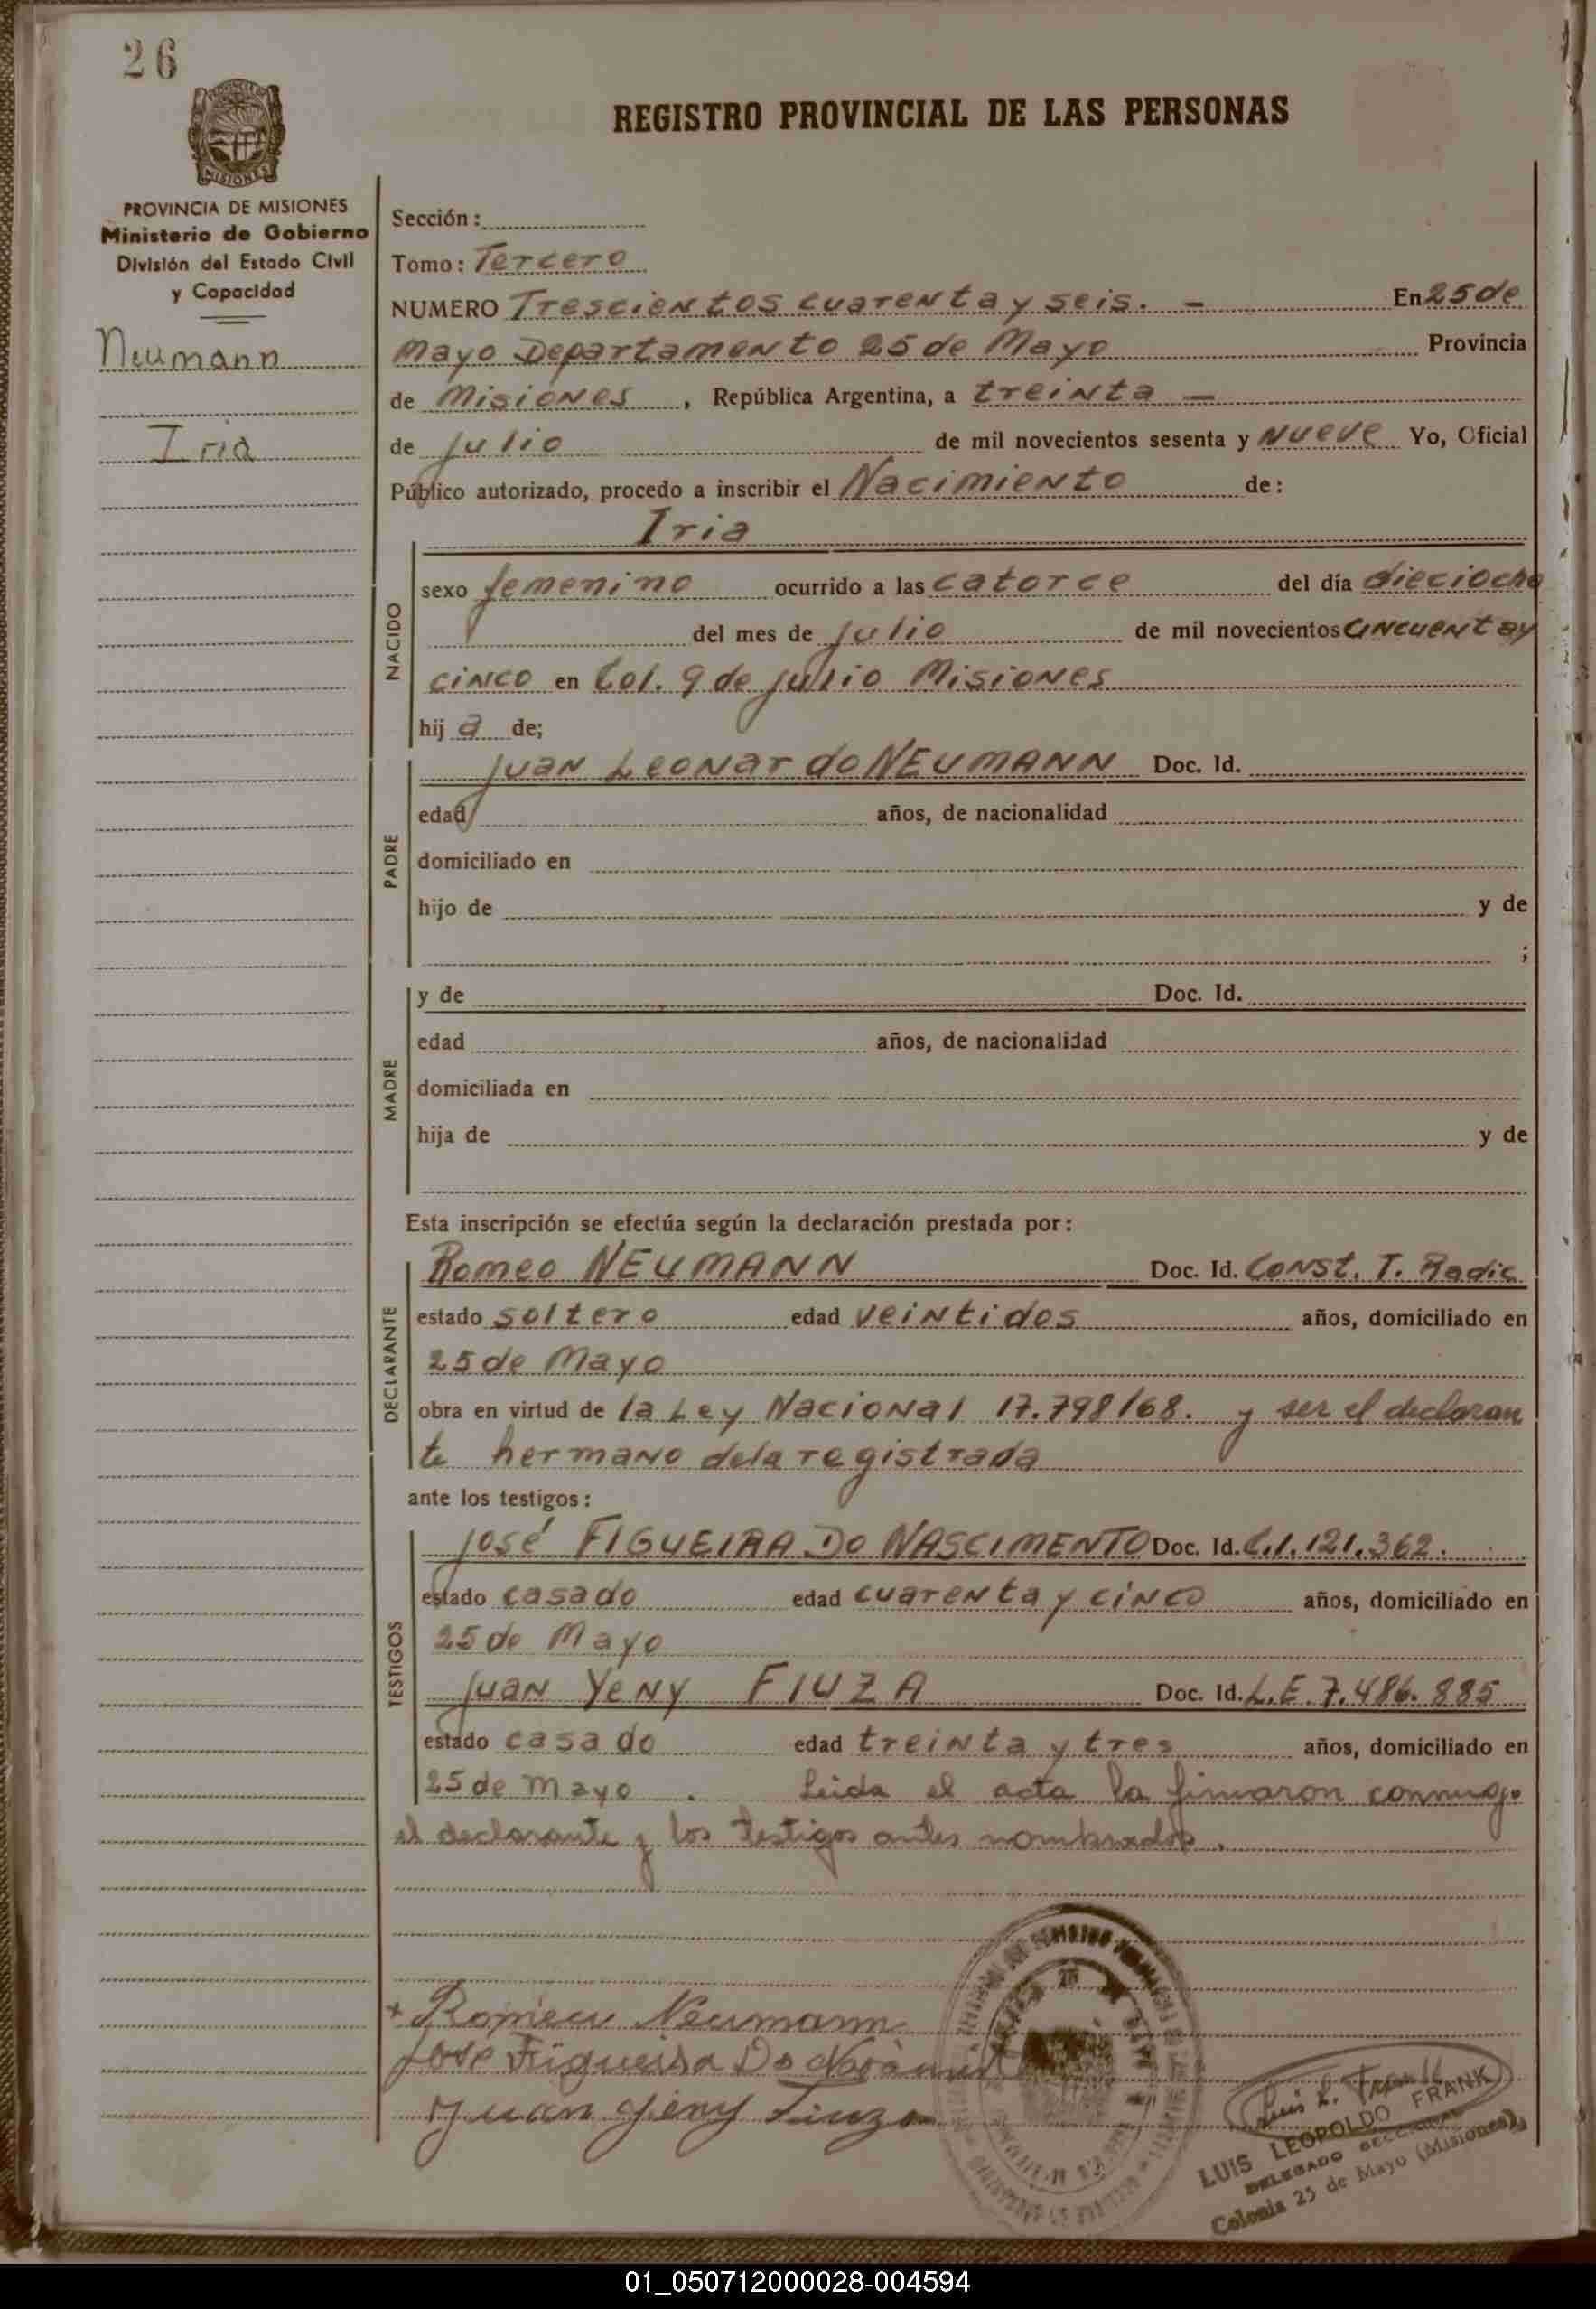 26
MISIONES
REGISTRO PROVINCIAL DE LAS PERSONAS
PROVINCIA DE MISIONES
Ministerio de Gobierno
División del Estado Civil
y Capacidad
Neumann
Iria
Sección:
Tomo: Tercero
NUMERO Trescientos cuarenta y seis. — En 25 de
Mayo Departamento 25 de Mayo Provincia
de Misiones, República Argentina, a treinta —
de julio de mil novecientos sesenta y nueve Yo, Oficial
Público autorizado, procedo a inscribir el Nacimiento de:
Iria
NACIDO
sexo femenino ocurrido a las catorce del día dieciocho
del mes de julio de mil novecientos cincuenta y
cinco en Col. 9 de julio Misiones
hij a de;
PADRE
Juan Leonardo NEUMANN Doc. Id.
edad años, de nacionalidad
domiciliado en
hijo de y de
;
MADRE
y de Doc. Id.
edad años, de nacionalidad
domiciliada en
hija de y de
Esta inscripción se efectúa según la declaración prestada por:
DECLARANTE
Romeo NEUMANN Doc. Id. Const. T. Radic
estado soltero edad veintidos años, domiciliado en
25 de Mayo
obra en virtud de la Ley Nacional 17.798/68. y ser el declaran
te hermano de la registrada
ante los testigos:
TESTIGOS
José FIGUEIRA DO NASCIMENTO Doc. Id. C.I. 121.362.
estado casado edad cuarenta y cinco años, domiciliado en
25 de Mayo
Juan Yeny FIUZA Doc. Id. L.E. 7.486.885
estado casado edad treinta y tres años, domiciliado en
25 de Mayo . Leida el acta la firmaron conmigo
el declarante y los testigos antes nombrados.
+ Romeu Neumann
Jose Figueira Do
Juan Yeny Fiuza
Luis L. Frank
LUIS LEOPOLDO FRANK
DELEGADO SECCIONAL
Colonia 25 de Mayo (Misiones)
01_050712000028-004594